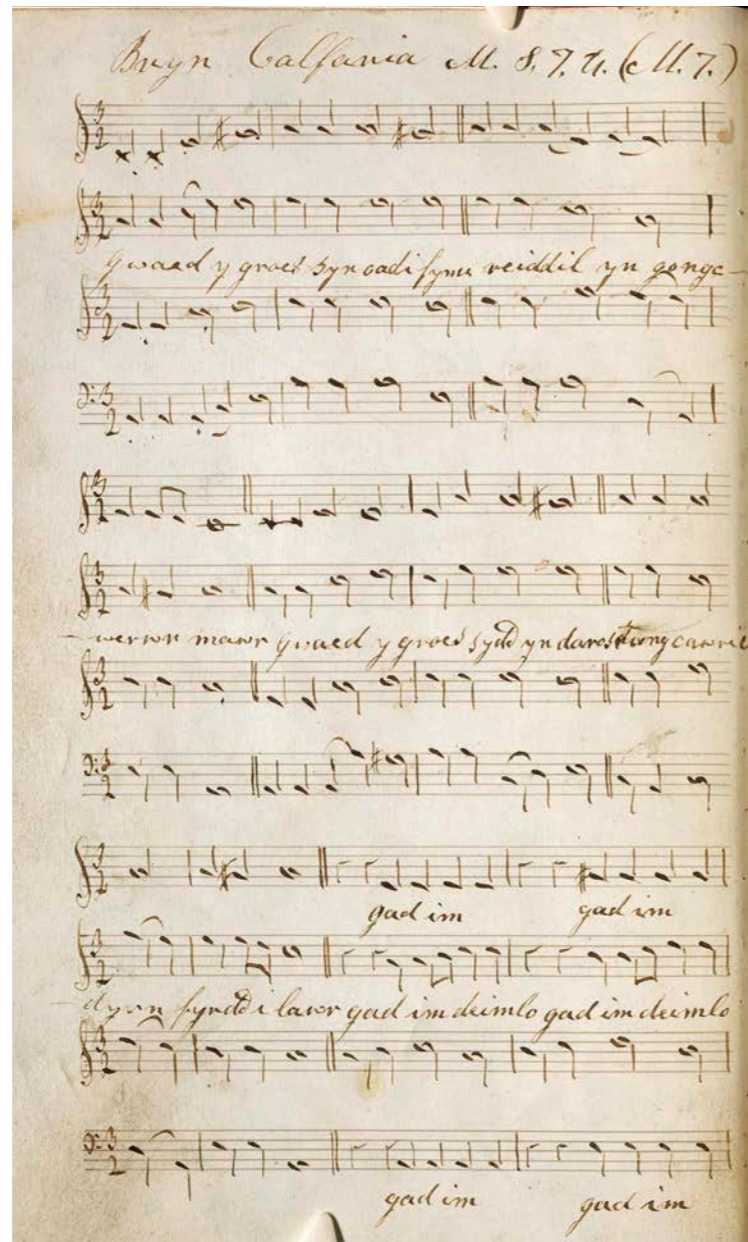 Bryn Calfaria M. 8. 7. 4. (M. 7.)
Gwaed y groes sy'n codi fynu 'r eiddil yn gongc-
-werwr mawr gwaed y groes sydd yn darostwng cawri
-dyrn fyrdd i lawr gad im deimlo gad im deimlo
gad im gad im
gad im gad im